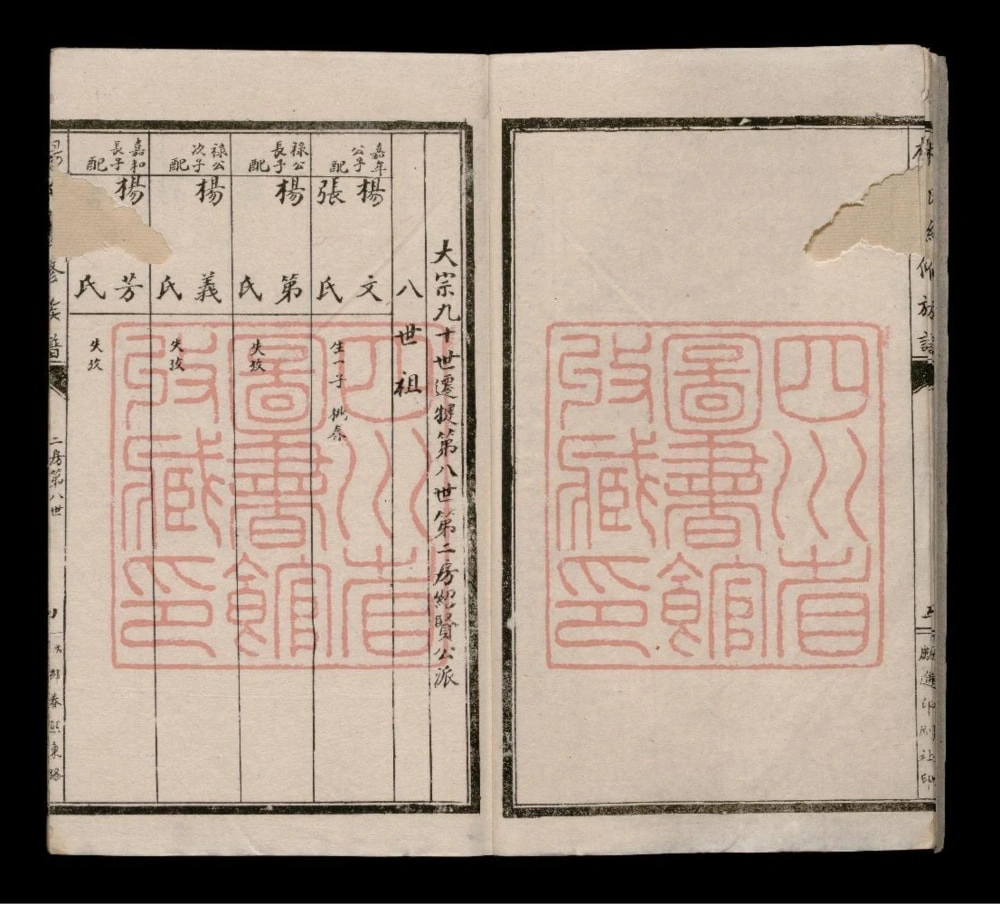 氏紹仙族譜
五
四川省
圖書館
收藏印
大宗九十世遷犍第八世第二房紹賢公派
八世祖
嘉年公子 楊文
配 張氏 生一子 桃泰
祿公長子 楊第
配 氏 失攷
祿公次子 楊義
配 氏 失攷
嘉和長子 楊芳
配 氏 失攷
修族譜
二房第八世
春熙東路
四川省
圖書館
收藏印